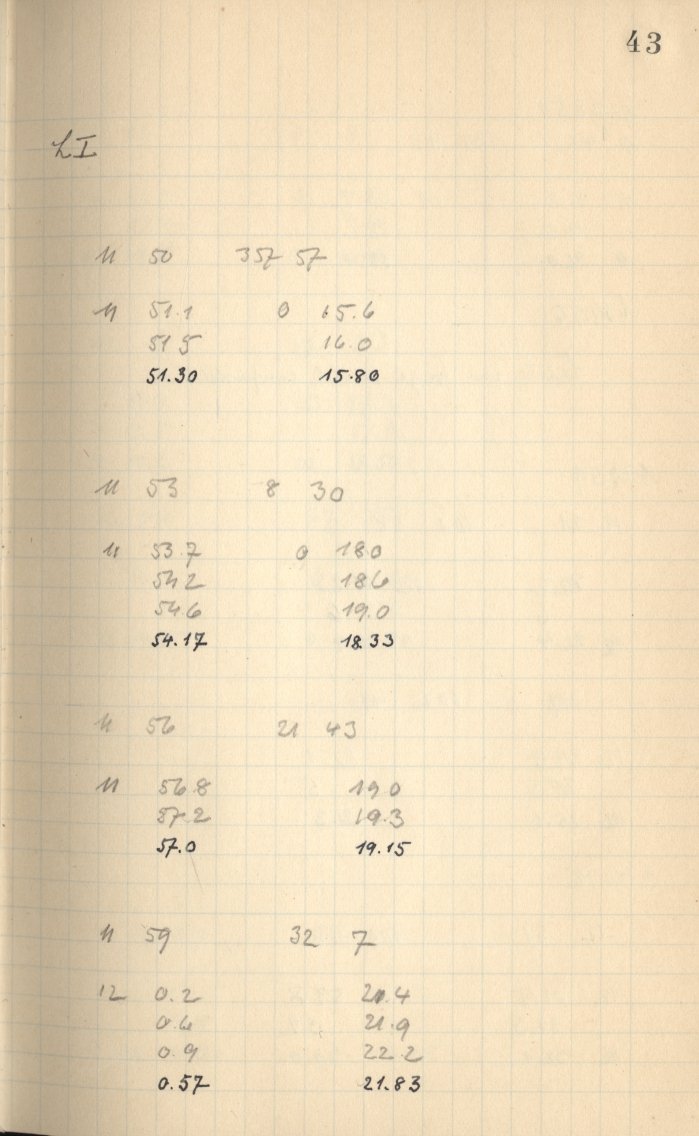 43
LI
11 50 357 57
11 51.1 0 15.6
51 5 16.0
51.30 15.80
11 53 8 30
11 53.7 0 18.0
54.2 18.6
54.6 19.0
54.17 18.33
11 56 21 43
11 56.8 19.0
57.2 19.3
57.0 19.15
11 59 32 7
12 0.2 21.4
0.6 21.9
0.9 22.2
0.57 21.83